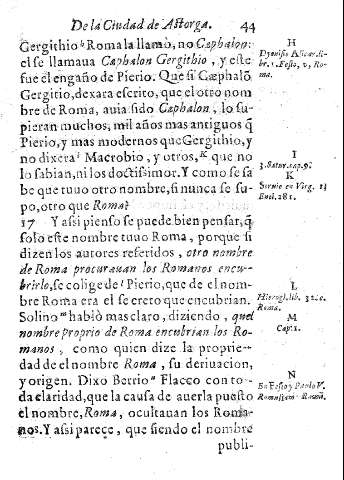 De la Ciudad de Astorga. 44
Gergithio ʰ Roma la llamò, no Cæphalon:
el se llamaua Cæphalon Gergithio, y este
fue el engaño de Pierio. Que si Cæphalō
Gergitio, dexara escrito, que el otro nom
bre de Roma, auia sido Cæphalon, lo su-
pieran muchos, mil años mas antiguos q̃
Pierio, y mas modernos que Gergithio, y
no dixera ⁱ Macrobio, y otros, ᵏ que no
lo sabian, ni los doctissimos. Y como se sa
be que tuuo otro nombre, si nunca se su-
po, otro que Roma?
17 Y assi pienso se puede bien pensar, q̃
solo este nombre tuuo Roma, porque si
dizen los autores referidos, otro nombre
de Roma procurauan los Romanos encu-
brirlo, se colige de ˡ Pierio, que de el nom-
bre Roma era el secreto que encubrian.
Solino ᵐ hablò mas claro, diziendo, que el
nombre proprio de Roma encubrian los Ro-
manos, como quien dize la proprie-
dad de el nombre Roma, su deriuacion,
y origen. Dixo Berrio ⁿ Flacco con to-
da claridad, que la causa de auerla puesto
el nombre, Roma, ocultauan los Roma-
nos. Y assi parece, que siendo el nombre
publi-
H
Dyonisio Alicar. li-
br. 1. Festo, v, Ro-
ma.
I
3. Satur. cap. 9.
K
Seruio en Virg. 1.
Eneid. 281.
L
Hierogl. lib. 32. c.
Roma.
M
Cap. 1.
N
En Festo y Paulo V.
Romam. Roma.